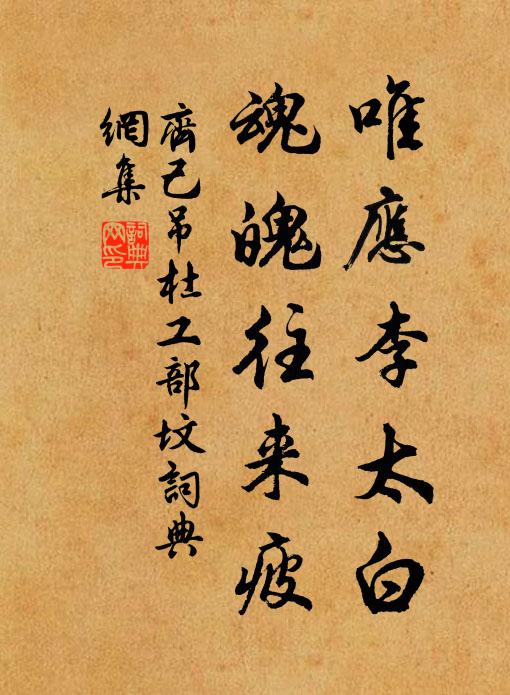 唯應李太白
魂魄往来疲
齊己吊杜工部坟詞典
網集
詞典
网印